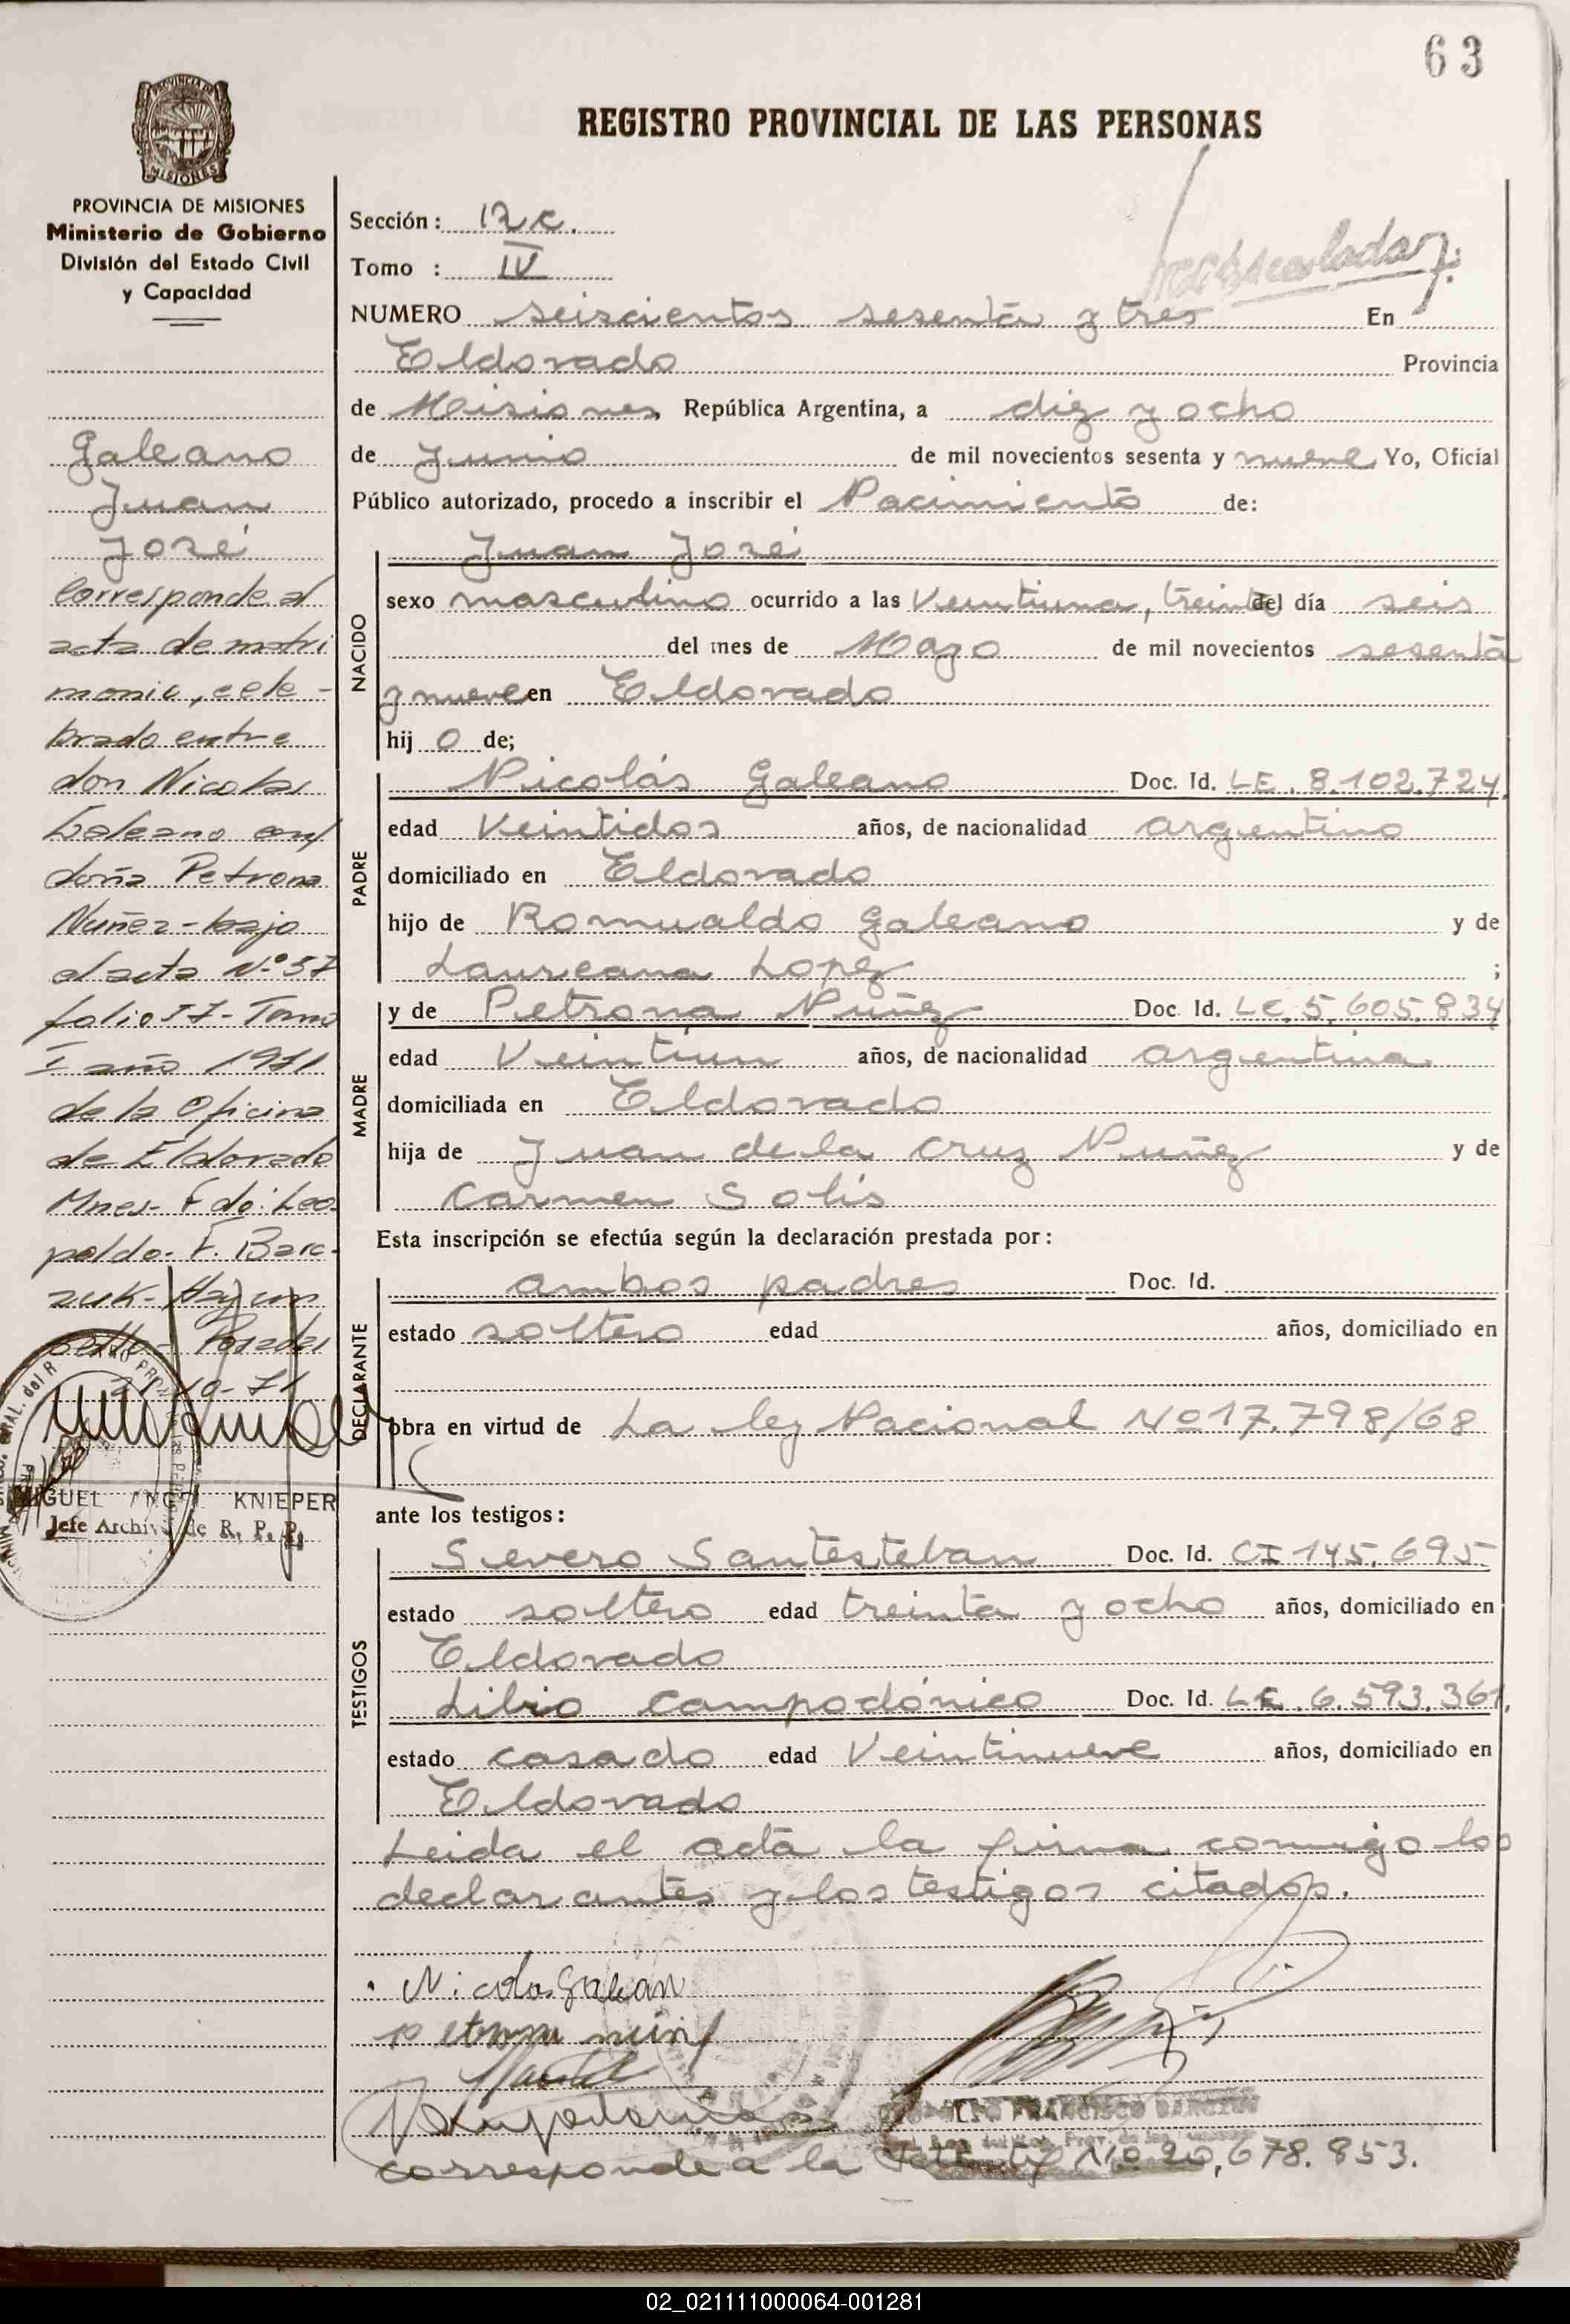 63
REGISTRO PROVINCIAL DE LAS PERSONAS
PROVINCIA DE MISIONES
Ministerio de Gobierno
División del Estado Civil
y Capacidad
Galeano
Juan
José
Corresponde al
acta de matri
monio, cele-
brado entre
don Nicolas
Galeano con
doña Petrona
Nuñez - bajo
el acta Nº 57
folio 57 - Tomo
I año 1971
de la Oficina
de Eldorado
Mnes- Fdo: Leo
poldo - F. Barc-
zuk-
Posadas
21-10-71
MIGUEL ANGEL KNIEPER
Jefe Archivo de R. P. P.
Sección: 12 c.
Tomo : IV
NUMERO seiscientos sesenta y tres En
Eldorado Provincia
de Misiones República Argentina, a diez y ocho
de Junio de mil novecientos sesenta y nueve Yo, Oficial
Público autorizado, procedo a inscribir el Nacimiento de:
NACIDO
Juan José
sexo masculino ocurrido a las Veintiuna, treinta del día seis
del mes de Mayo de mil novecientos sesenta
y nueve en Eldorado
hij o de;
PADRE
Nicolás Galeano Doc. Id. LE. 8.102.724
edad Veintidos años, de nacionalidad argentino
domiciliado en Eldorado
hijo de Romualdo Galeano y de
Laureana Lopez ;
MADRE
y de Petrona Nuñez Doc. Id. LC. 5.605.834
edad Veintiun años, de nacionalidad argentina
domiciliada en Eldorado
hija de Juan de la Cruz Nuñez y de
Carmen Solis
Esta inscripción se efectúa según la declaración prestada por:
DECLARANTE
ambos padres Doc. Id.
estado soltero edad años, domiciliado en
obra en virtud de La ley Nacional Nº 17.798/68
ante los testigos:
TESTIGOS
Severo Santesteban Doc. Id. CI 145.695
estado soltero edad treinta y ocho años, domiciliado en
Eldorado
Libio Campodónico Doc. Id. LE. 6.593.361
estado casado edad Veintinueve años, domiciliado en
Eldorado
Leida el acta la firma conmigo los
declarantes y los testigos citados.
Nicolas Galean
petrona
FRANCISCO
corresponde a la Nº 20.678.853.
02_021111000064-001281